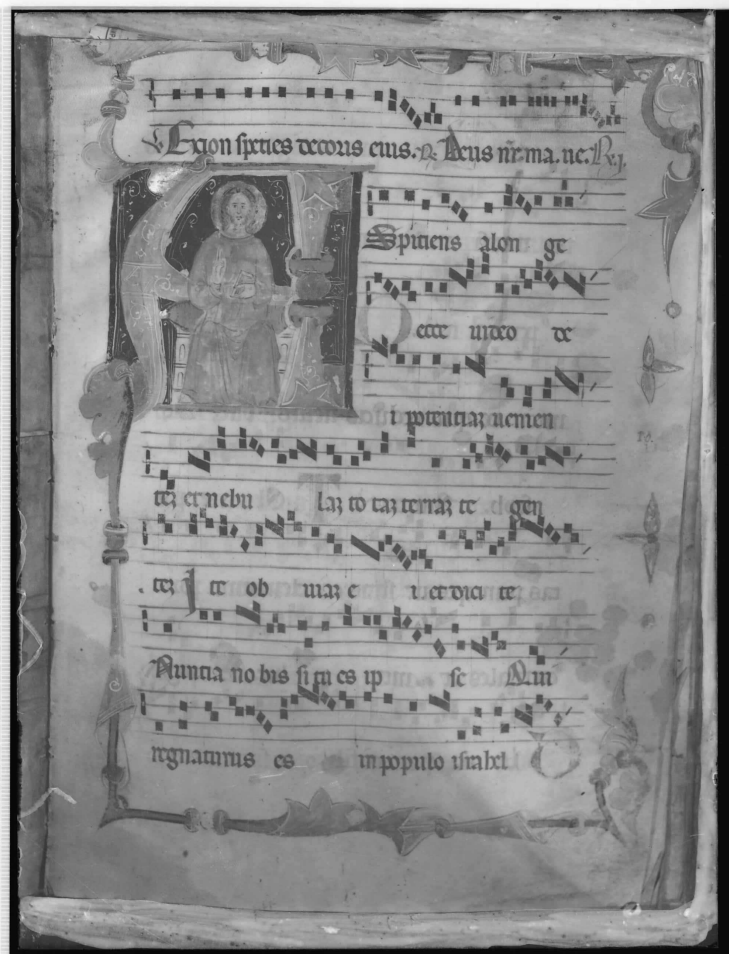 Ex sion species decoris eius. R. Deus nr̄. ma. ue. R. j.
Aspiciens a lon ge
ecce uideo de
i potentiaz uenien
tez et nebu laz to taz terraz te gen
tez I te ob uiaz e i et dici te
Nuntia no bis si tu es ip se Qui
regnaturus es in populo israhel